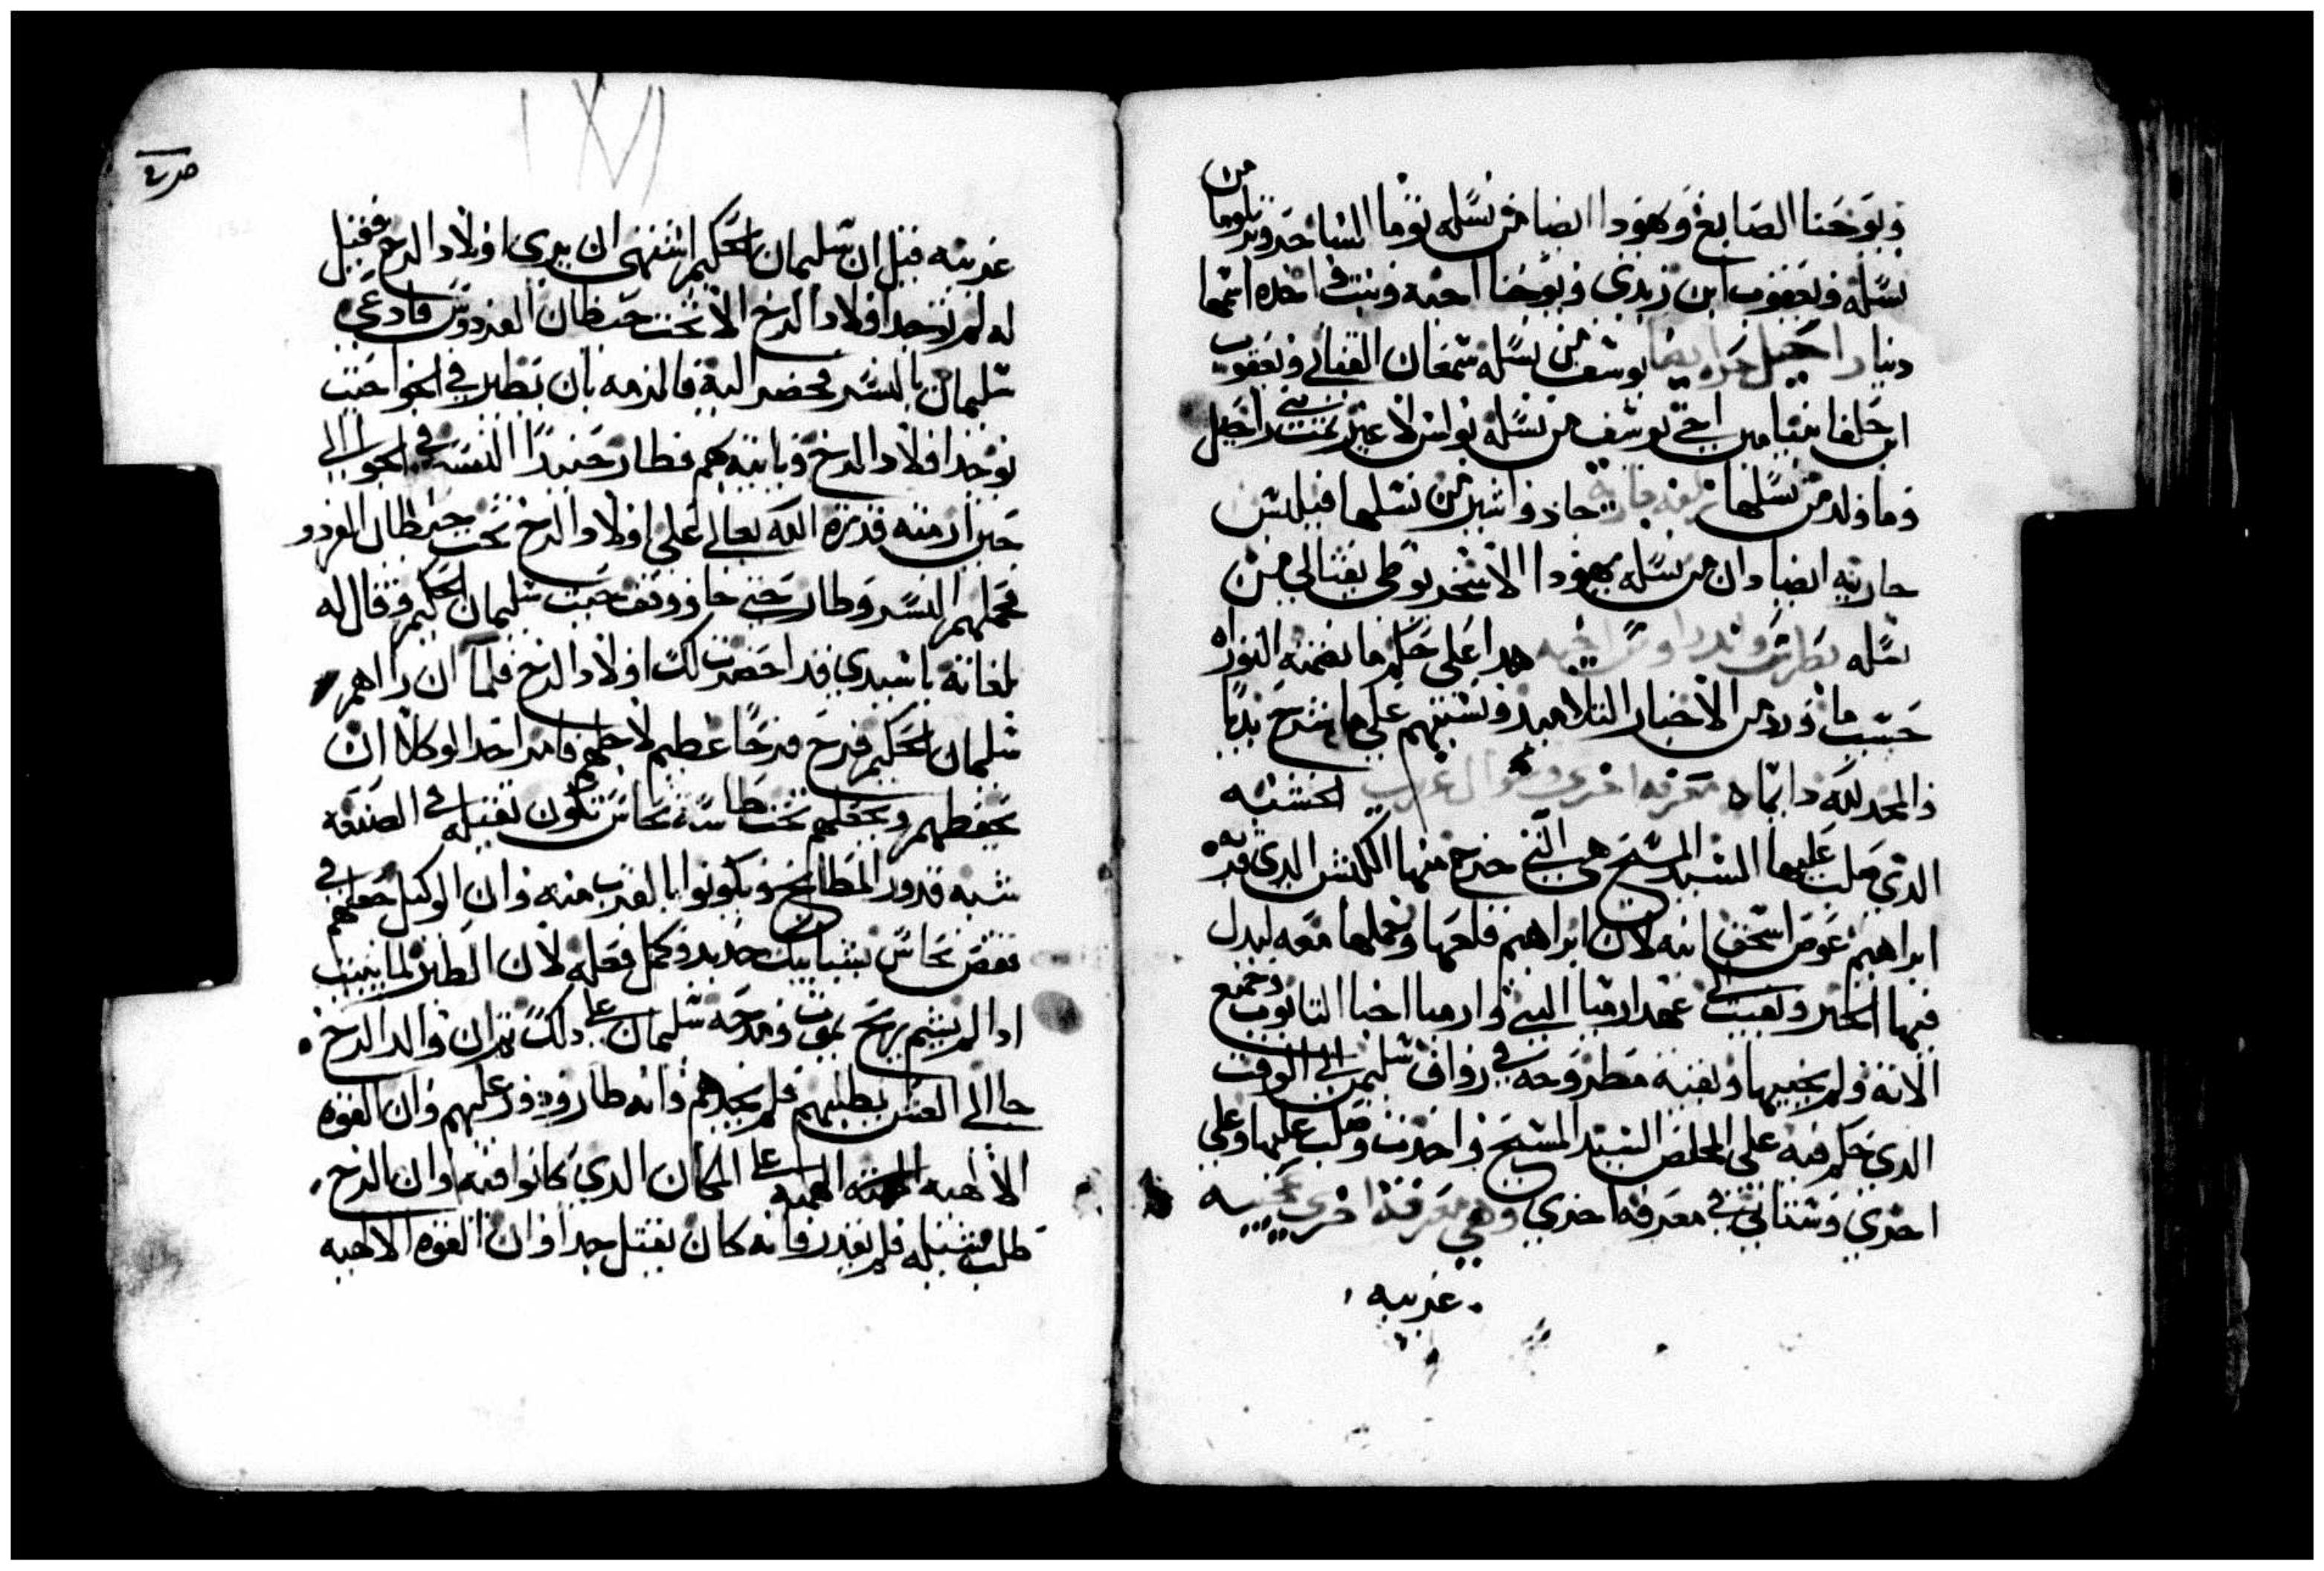 ويوحنا الصايغ وهودا ايضا من نسله توما الساحر وتلوما من
نسله ويعقوب ابن زبدي ويوحنا اخيه وبنت واحده اسمها
دينا راحيل يوسف من نسله شمعان القناني ويعقوب
ابن حلفا بنيامين اخي يوسف من نسله بولس لا غير بنت راحيل
وما ولد من نسلها جاد واشير من نسلهما فيلبس
جاريته ايضا دان من نسله يهودا الاسخريوطي نفتالي من
نسله بطرس واندراوس اخيه هدا على حكم ما تضمنه التوراه
حسب ما ورد من الاخبار التلاميد ونسبتهم على ما شرح بديا
والمجد لله دايما معرفه اخرى الخشبه
الدي صلب عليها السيد المسيح هي التي خرج منها الكبش الدي قربه
ابراهيم عوض اسحق ابنه لان ابراهيم قلعها وحملها معه ليدل
فيها الخبر وبقيت الى عهد ارميا النبي وارميا اخبا التابوت وجميع
الانية ولم يخبيها وبقيه مطروحه في رواق سليمن الى الوقت
الدي حكم فيه على المخلص السيد المسيح واخدت وصلب عليها وعلى
اخرى وستاتي في معرفه اخرى وهي معرفة اخرى عجيبه
غريبه
غريبه قيل ان سليمان الحكيم اشتهى ان يرى اولاد الرخ فقيل
له لم توجد اولاد الرخ الا تحت حيطان الفردوس فادعى
سليمان بالنسر فحضر اليه فالزمه بان يطير في الجو حيت
توجد اولاد الرخ وياتيه بهم فطار حينيدا النسر في الجو الى
حين ارمته قدرة الله تعالى على اولاد الرخ تحت حيطان الفردو
فحملهم النسر وطار حتى جا ووقف حيت سليمان الحكيم وقال له
بلغاته يا سيدي قد احضرت لك اولاد الرخ فلما ان راهم
سليمان الحكيم فرح فرحا عظيم لاجلهم فامر احد الوكلا ان
يحفظهم ويجعلهم تحت طاسة نحاس تكون تقيله في الصنعه
شبه قدور المطابخ ويكونوا بالقرب منه وان الوكيل جعلهم في
قفص نحاس بشبابيك حديد وكمل فعله لان الطير لما يبيت
ادا لم يشم ريح يموت ومدحه سليمان على دلك تم ان والد الرخ
جا الى العش يطلبهم فلم يجدهم وانه طار ودور عليهم وان القوه
الالاهيه الهمته على المكان الدي كانوا فيه وان الرخ
طلب سبيله فلم يقدر فانه كان تقيل جدا وان القوه الالاهيه